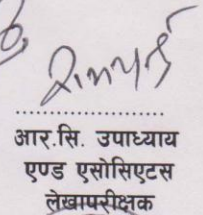 आर.सि. उपाध्याय
एण्ड एसोसिएटस
लेखापरीक्षक